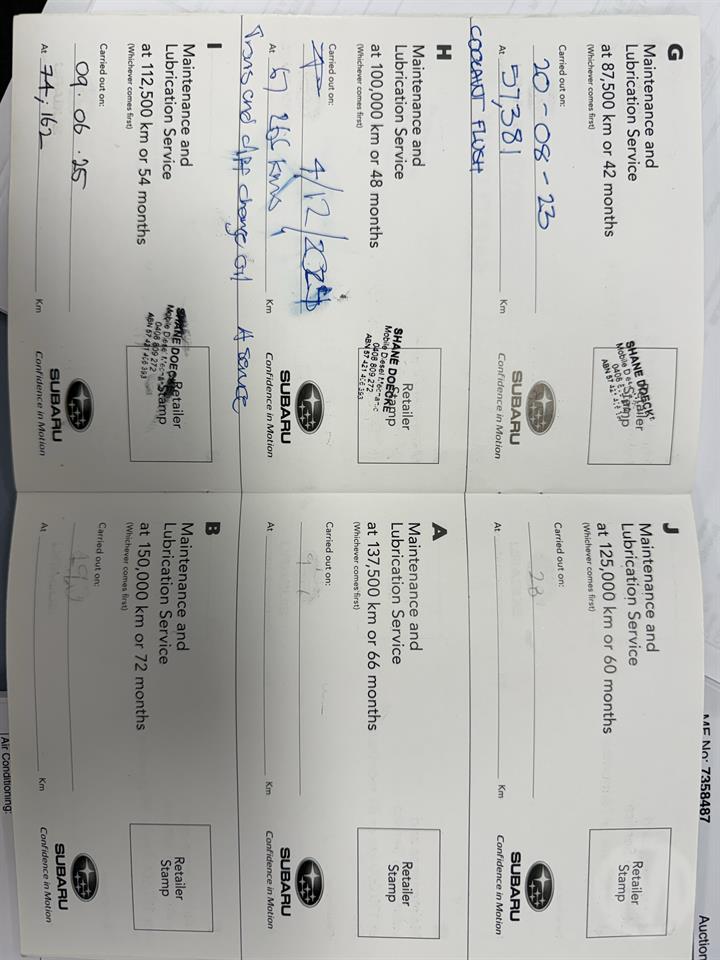 G
Maintenance and
Lubrication Service
at 87,500 km or 42 months
(Whichever comes first)
Carried out on:
20-08-23
At 57,381 Km
COOLANT FLUSH
Retailer
Stamp
Mobile Diesel
SUBARU
Confidence in Motion
H
Maintenance and
Lubrication Service
at 100,000 km or 48 months
(Whichever comes first)
Carried out on:
4/12/2024
At 67 265 kms Km
Trans and diff change oil A service
Retailer
Stamp
SHANE DOECKE
Mobile Diesel Mechanic
0408 809 272
SUBARU
Confidence in Motion
I
Maintenance and
Lubrication Service
at 112,500 km or 54 months
(Whichever comes first)
Carried out on:
09.06.25
At 74,162 Km
Retailer
Stamp
SHANE DOECKE
Mobile Diesel Mechanic
0408 809 272
SUBARU
Confidence in Motion
J
Maintenance and
Lubrication Service
at 125,000 km or 60 months
(Whichever comes first)
Carried out on:
At Km
Retailer
Stamp
SUBARU
Confidence in Motion
A
Maintenance and
Lubrication Service
at 137,500 km or 66 months
(Whichever comes first)
Carried out on:
At Km
Retailer
Stamp
SUBARU
Confidence in Motion
B
Maintenance and
Lubrication Service
at 150,000 km or 72 months
(Whichever comes first)
Carried out on:
At Km
Retailer
Stamp
SUBARU
Confidence in Motion
No: 7358487
Auction
Air Conditioning: